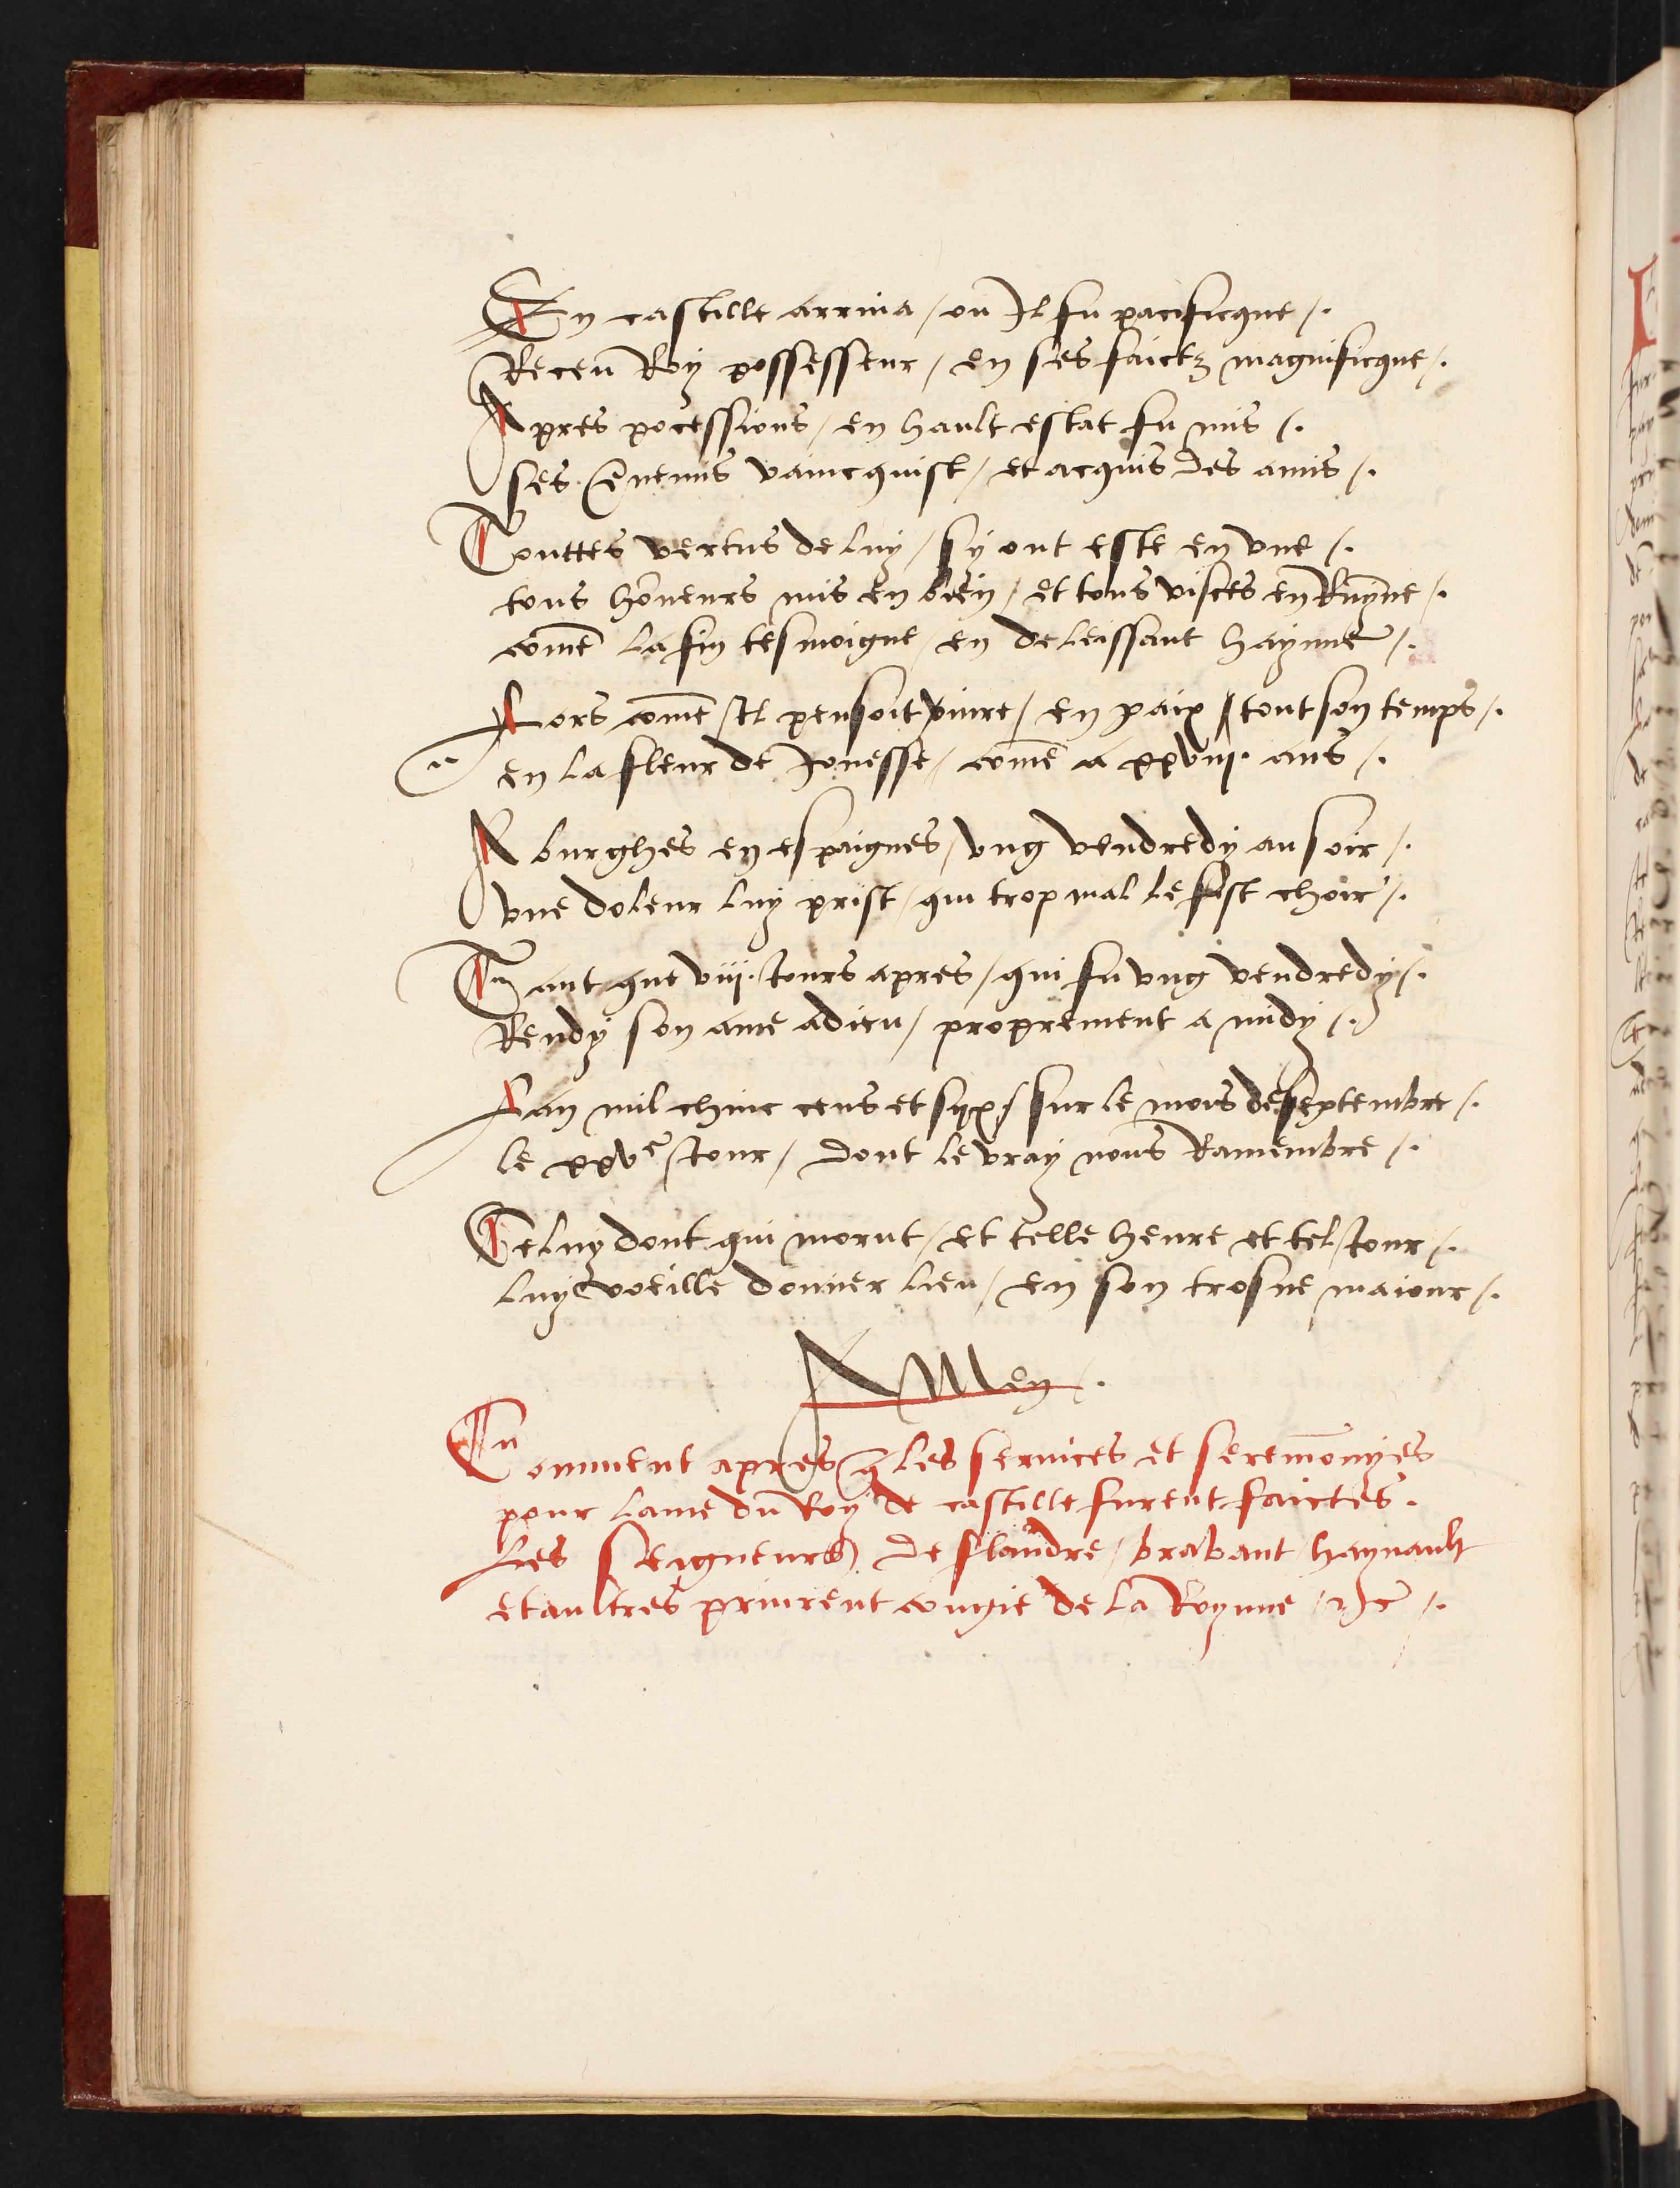 En castille arriua / ou Jl fu pacificque /.
Receu Roy possesseur / en ses faictz magnificque /.
Apres pocessions / en hault estat fu mis /.
ses enemis vaincquist / et acquis des amis /.
Touttes vertus de luy / sy ont este en vne /.
tous hōneurs mis en bien / et tous visces en Ruyne /.
com̄e la fin tesmoigne / en deleissant haynne /.
Lors com̄e Jl pensoit viure / en paix / tout son temps /.
en la fleur de Jonesse / com̄e a xxviii. ans /.
A burghes en espaignes / vng vendredy au soir /.
vne doleur luy prist / qui trop mal le fist choir /.
Tant que viij. Jours apres / qui fu vng vendredy /.
Rendy son ame a dieu / proprement a midy /.
Lan mil chinc cens et syx / sur le mois de septembre /.
le xxve Jour / dont le vray nous Ramembre /.
Celuy dont qui morut / et telle heure et tel Jour /.
luy voeille donner lieu / en son trosne maiour /.
AMen /.
Comment apres q̄ les seruices et serem̄onyes
pour lame du Roy de castille furent faictes.
Les seigneurs de flandre / brabant / haynault
et aultres prinrent congie de la Roynne / etc /.